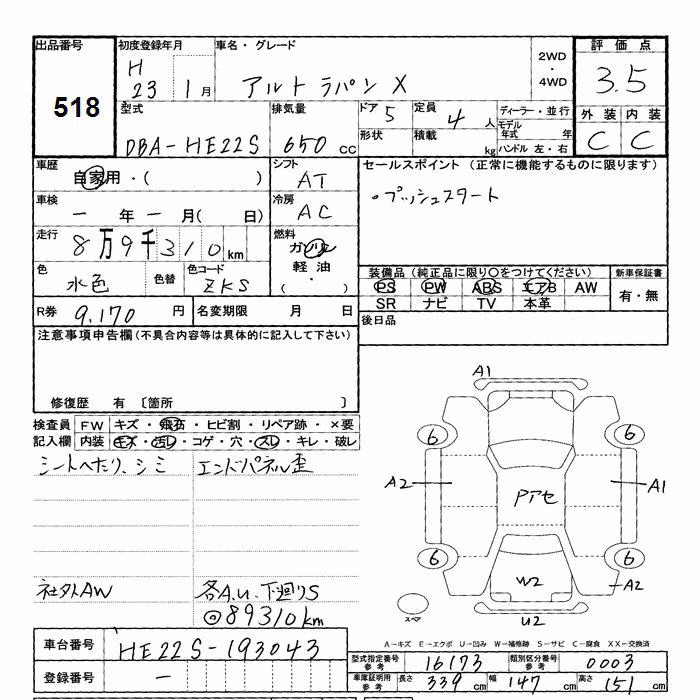 出品番号 初度登録年月 車名・グレード 2WD・4WD 評価点
518 H 23 1月 アルト ラパン X 3.5
型式 排気量 ドア 5 定員 4人 ディーラー・並行 外装 内装
DBA-HE22S 650cc 形状 積載 kg モデル年式 年 C C
ハンドル 左・右
車歴 シフト セールスポイント (正常に機能するものに限ります)
自家用・( ) AT ・プッシュスタート
車検 冷房
ー 年 ー 月( 日) AC
走行 燃料
8万9千310km ガソリン
軽油・( )
色 色替 色コード
水色 ZKS
装備品(純正品に限り〇をつけてください) 新車保証書
PS PW ABS エアB AW 有・無
SR ナビ TV 本革
R券 9.170円 名変期限 月 日
後日品
注意事項申告欄(不具合内容等は具体的に記入して下さい)
修復歴 有 〔箇所 〕
検査員 FW キズ・飛石・ヒビ割・リペア跡・×要
記入欄 内装 キズ・汚レ・コゲ・穴・スレ・キレ・破レ
シートへたり、シミ エンドパネル歪
社外AW 各A.U. 下廻りS
◎89310km
A1
6 6
A2 Pアセ A1
6 6
W2 A2
スペア U2
A-キズ E-エクボ U-凹み W-補修跡 S-サビ C-腐食 XX-交換済
車台番号 HE22S-193043
登録番号 ー
型式指定番号 参考 16173 類別区分番号 参考 0003
車庫証明用 参考 長さ 339cm 幅 147cm 高さ 151cm